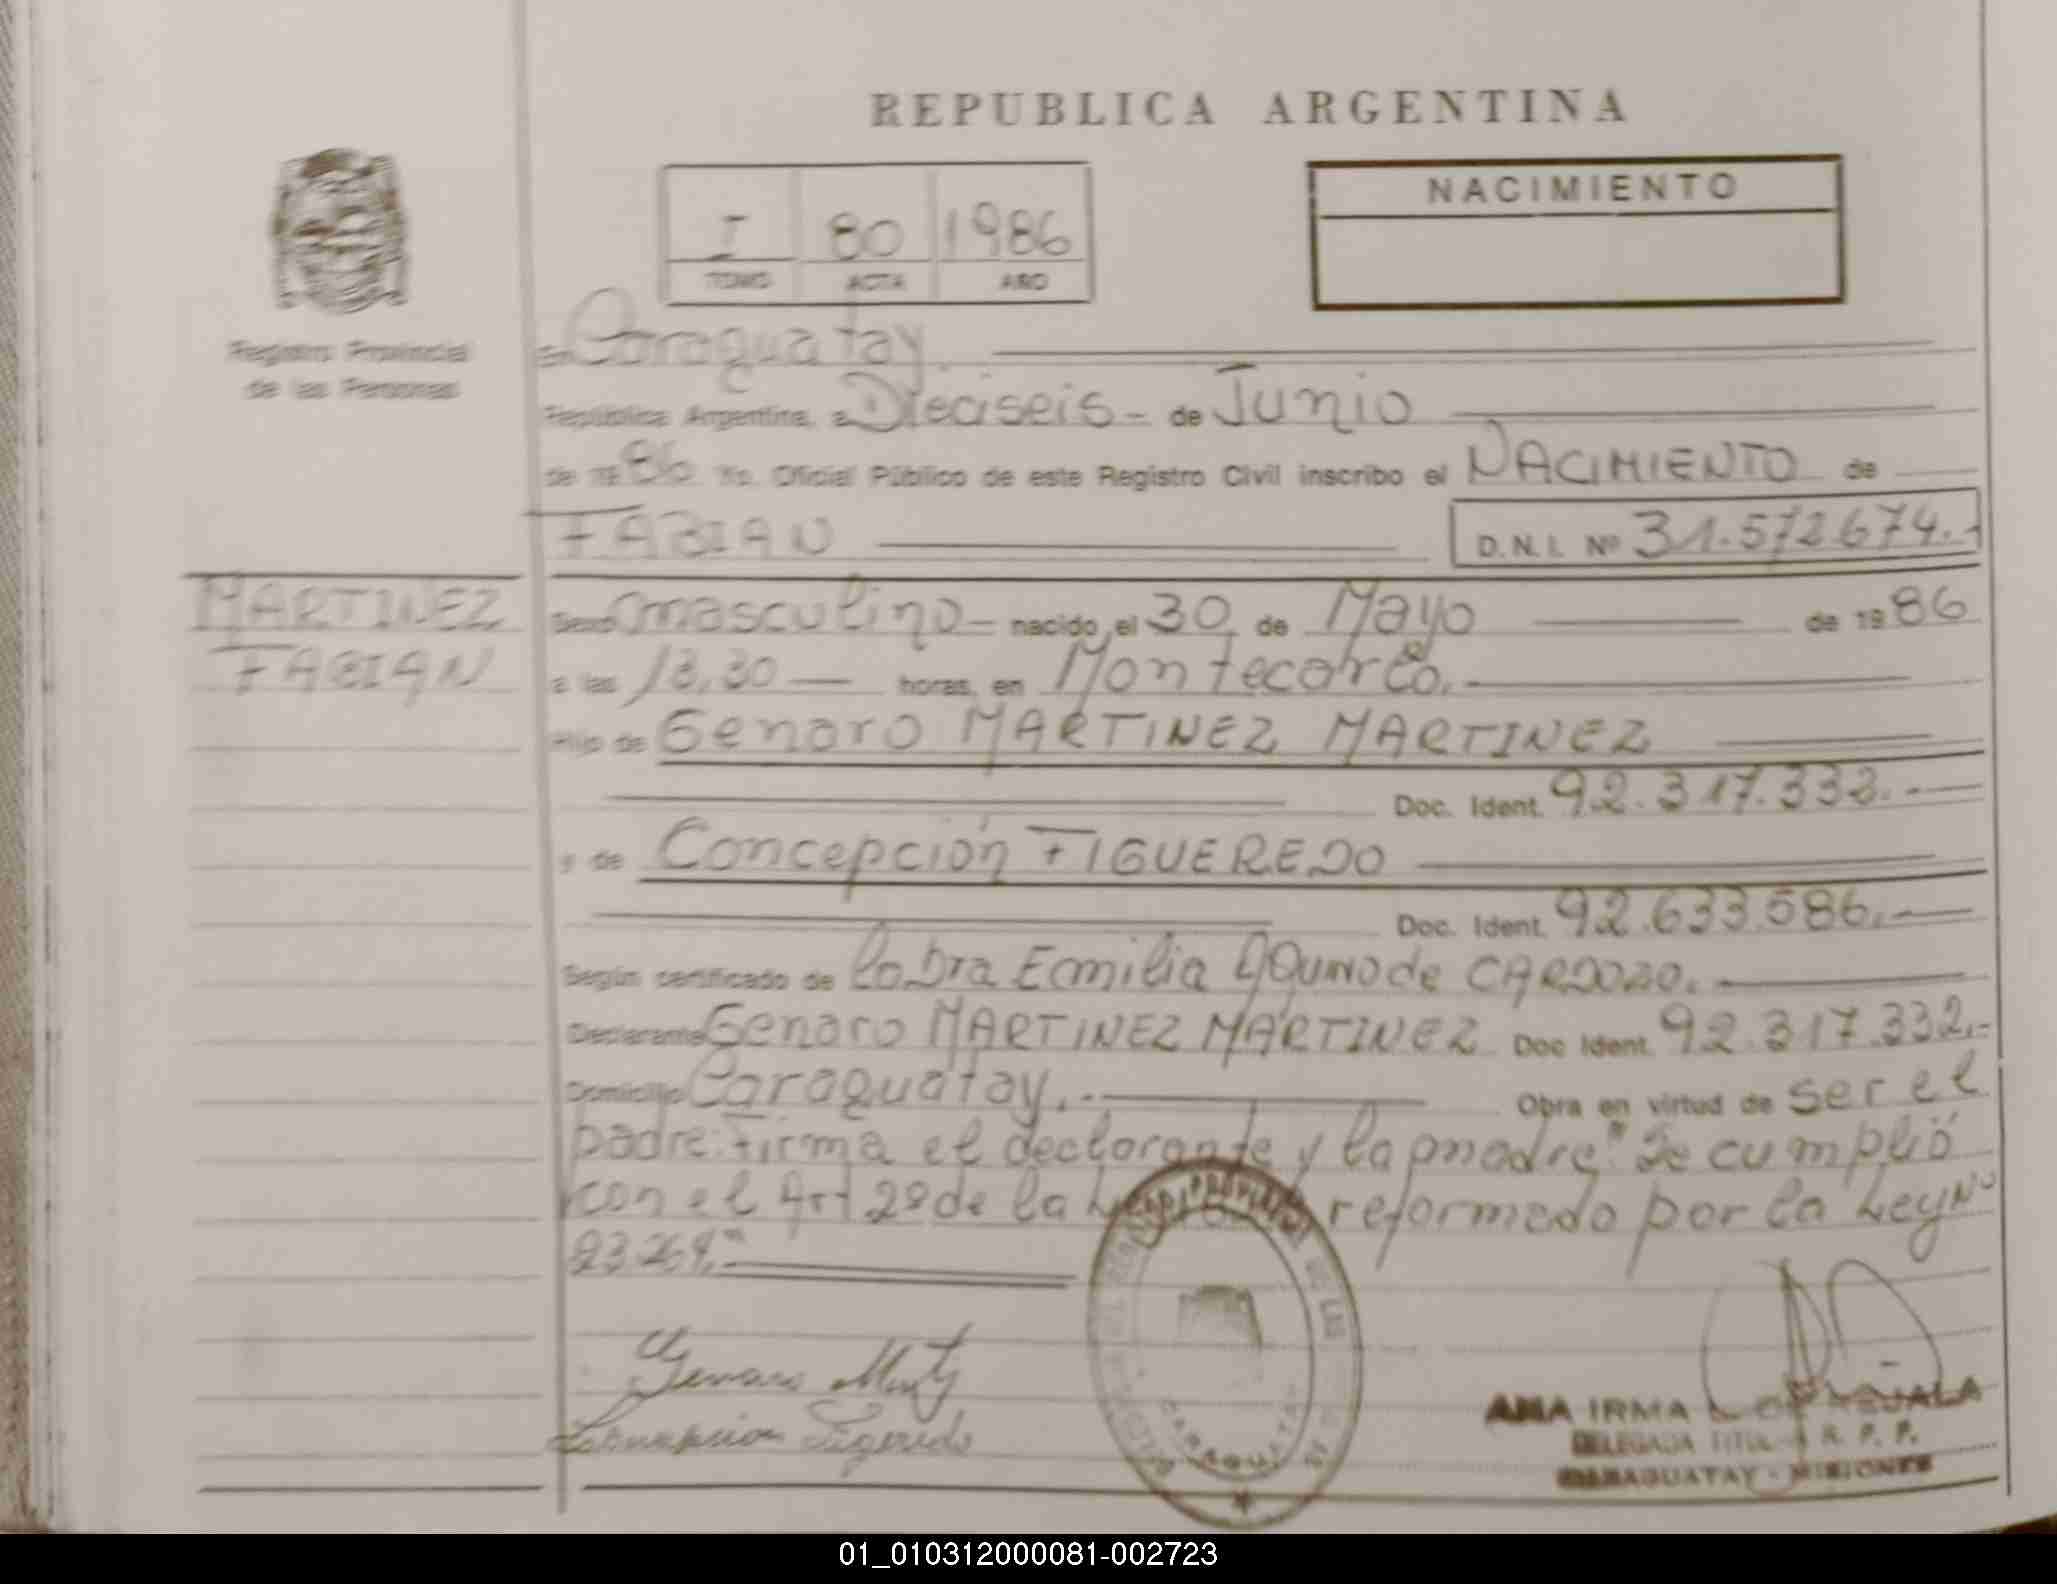 REPUBLICA ARGENTINA
NACIMIENTO
I 80 1986
TOMO ACTA AÑO
Registro Provincial
de las Personas
En Caraguatay.
República Argentina, a Dieciseis - de Junio
de 1986 Yo. Oficial Público de este Registro Civil inscribo el NACIMIENTO de
FABIAN D.N.I. Nº 31.572674.-
MARTINEZ
FABIAN
Sexo masculino - nacido el 30 de Mayo de 1986
a las 13,30 — horas, en Montecarlo.
Hijo de Genaro MARTINEZ MARTINEZ
Doc. Ident. 92.317.332.-
y de Concepción FIGUEREDO
Doc. Ident. 92.633.586.-
Según certificado de la Dra Emilia AQUINO de CARDOZO.
Declarante Genaro MARTINEZ MARTINEZ Doc Ident. 92.317.332.-
Domicilio Caraguatay.- Obra en virtud de ser el
padre: Firma el declarante y la madre." Se cumplió
con el Art 2º de la reformado por la Ley Nº
23.264."
Genaro
Concepcion Figueredo
CARAGUATAY
ANA IRMA
DELEGADA TITULAR R. P. P.
CARAGUATAY - MISIONES
01_010312000081-002723